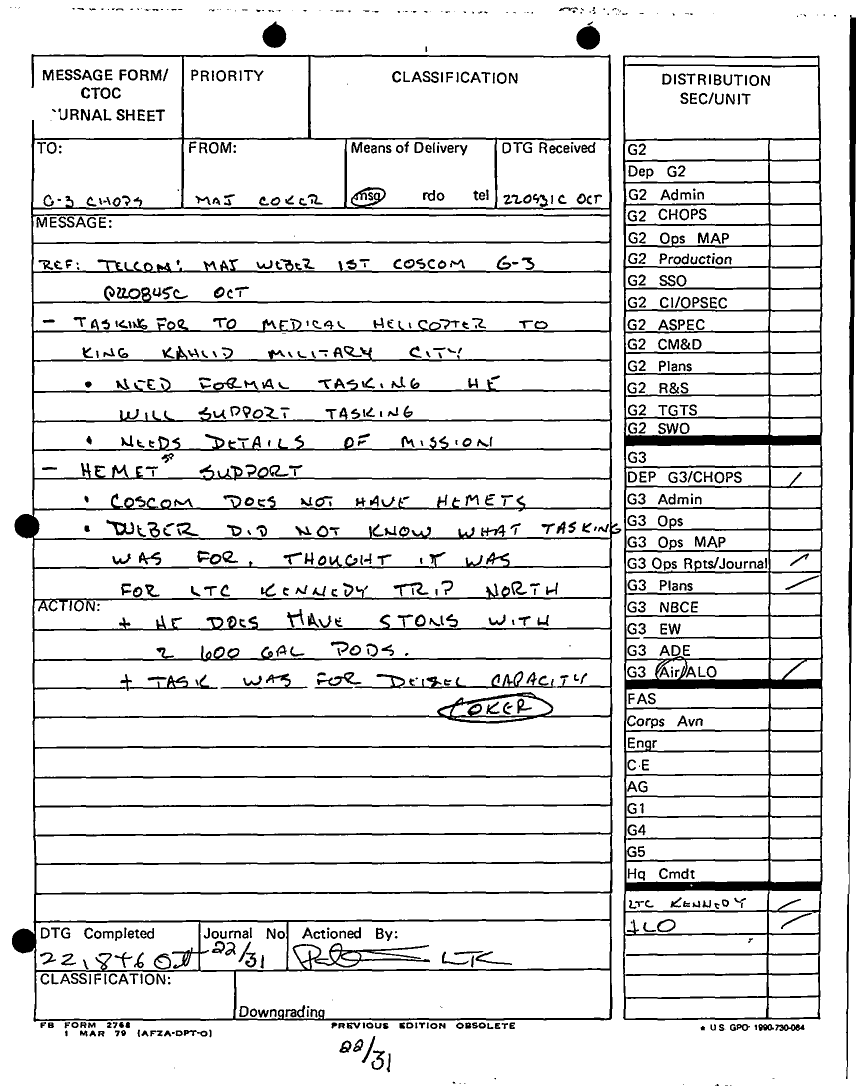 MESSAGE FORM/ CTOC URNAL SHEET
PRIORITY
CLASSIFICATION
TO:
G-3 CHOPS
FROM:
MAJ COKER
Means of Delivery
msg rdo tel
DTG Received
220931C OCT
MESSAGE:
REF: TELCOM: MAJ WEBER 1ST COSCOM G-3
@220845C OCT
- TASKING FOR TO MEDICAL HELICOPTER TO
KING KAHLID MILITARY CITY
• NEED FORMAL TASKING HE
WILL SUPPORT TASKING
• NEEDS DETAILS OF MISSION
- HEMET SUPPORT
• COSCOM DOES NOT HAVE HEMETS
• WEBER DID NOT KNOW WHAT TASKING
WAS FOR, THOUGHT IT WAS
FOR LTC KENNEDY TRIP NORTH
ACTION:
+ HE DOES HAVE 5TONS WITH
2 600 GAL PODS.
+ TASK WAS FOR DEISEL CAPACITY
COKER
DTG Completed
Journal No
22/31
Actioned By:
LTC
CLASSIFICATION:
Downgrading
FB FORM 2768
1 MAR 79 (AFZA-DPT-O)
PREVIOUS EDITION OBSOLETE
22/31
DISTRIBUTION
SEC/UNIT
G2
Dep G2
G2 Admin
G2 CHOPS
G2 Ops MAP
G2 Production
G2 SSO
G2 CI/OPSEC
G2 ASPEC
G2 CM&D
G2 Plans
G2 R&S
G2 TGTS
G2 SWO
G3
DEP G3/CHOPS
G3 Admin
G3 Ops
G3 Ops MAP
G3 Ops Rpts/Journal
G3 Plans
G3 NBCE
G3 EW
G3 ADE
G3 Air/ALO
FAS
Corps Avn
Engr
C-E
AG
G1
G4
G5
Hq Cmdt
LTC KENNEDY
U.S. GPO: 1990-730-084